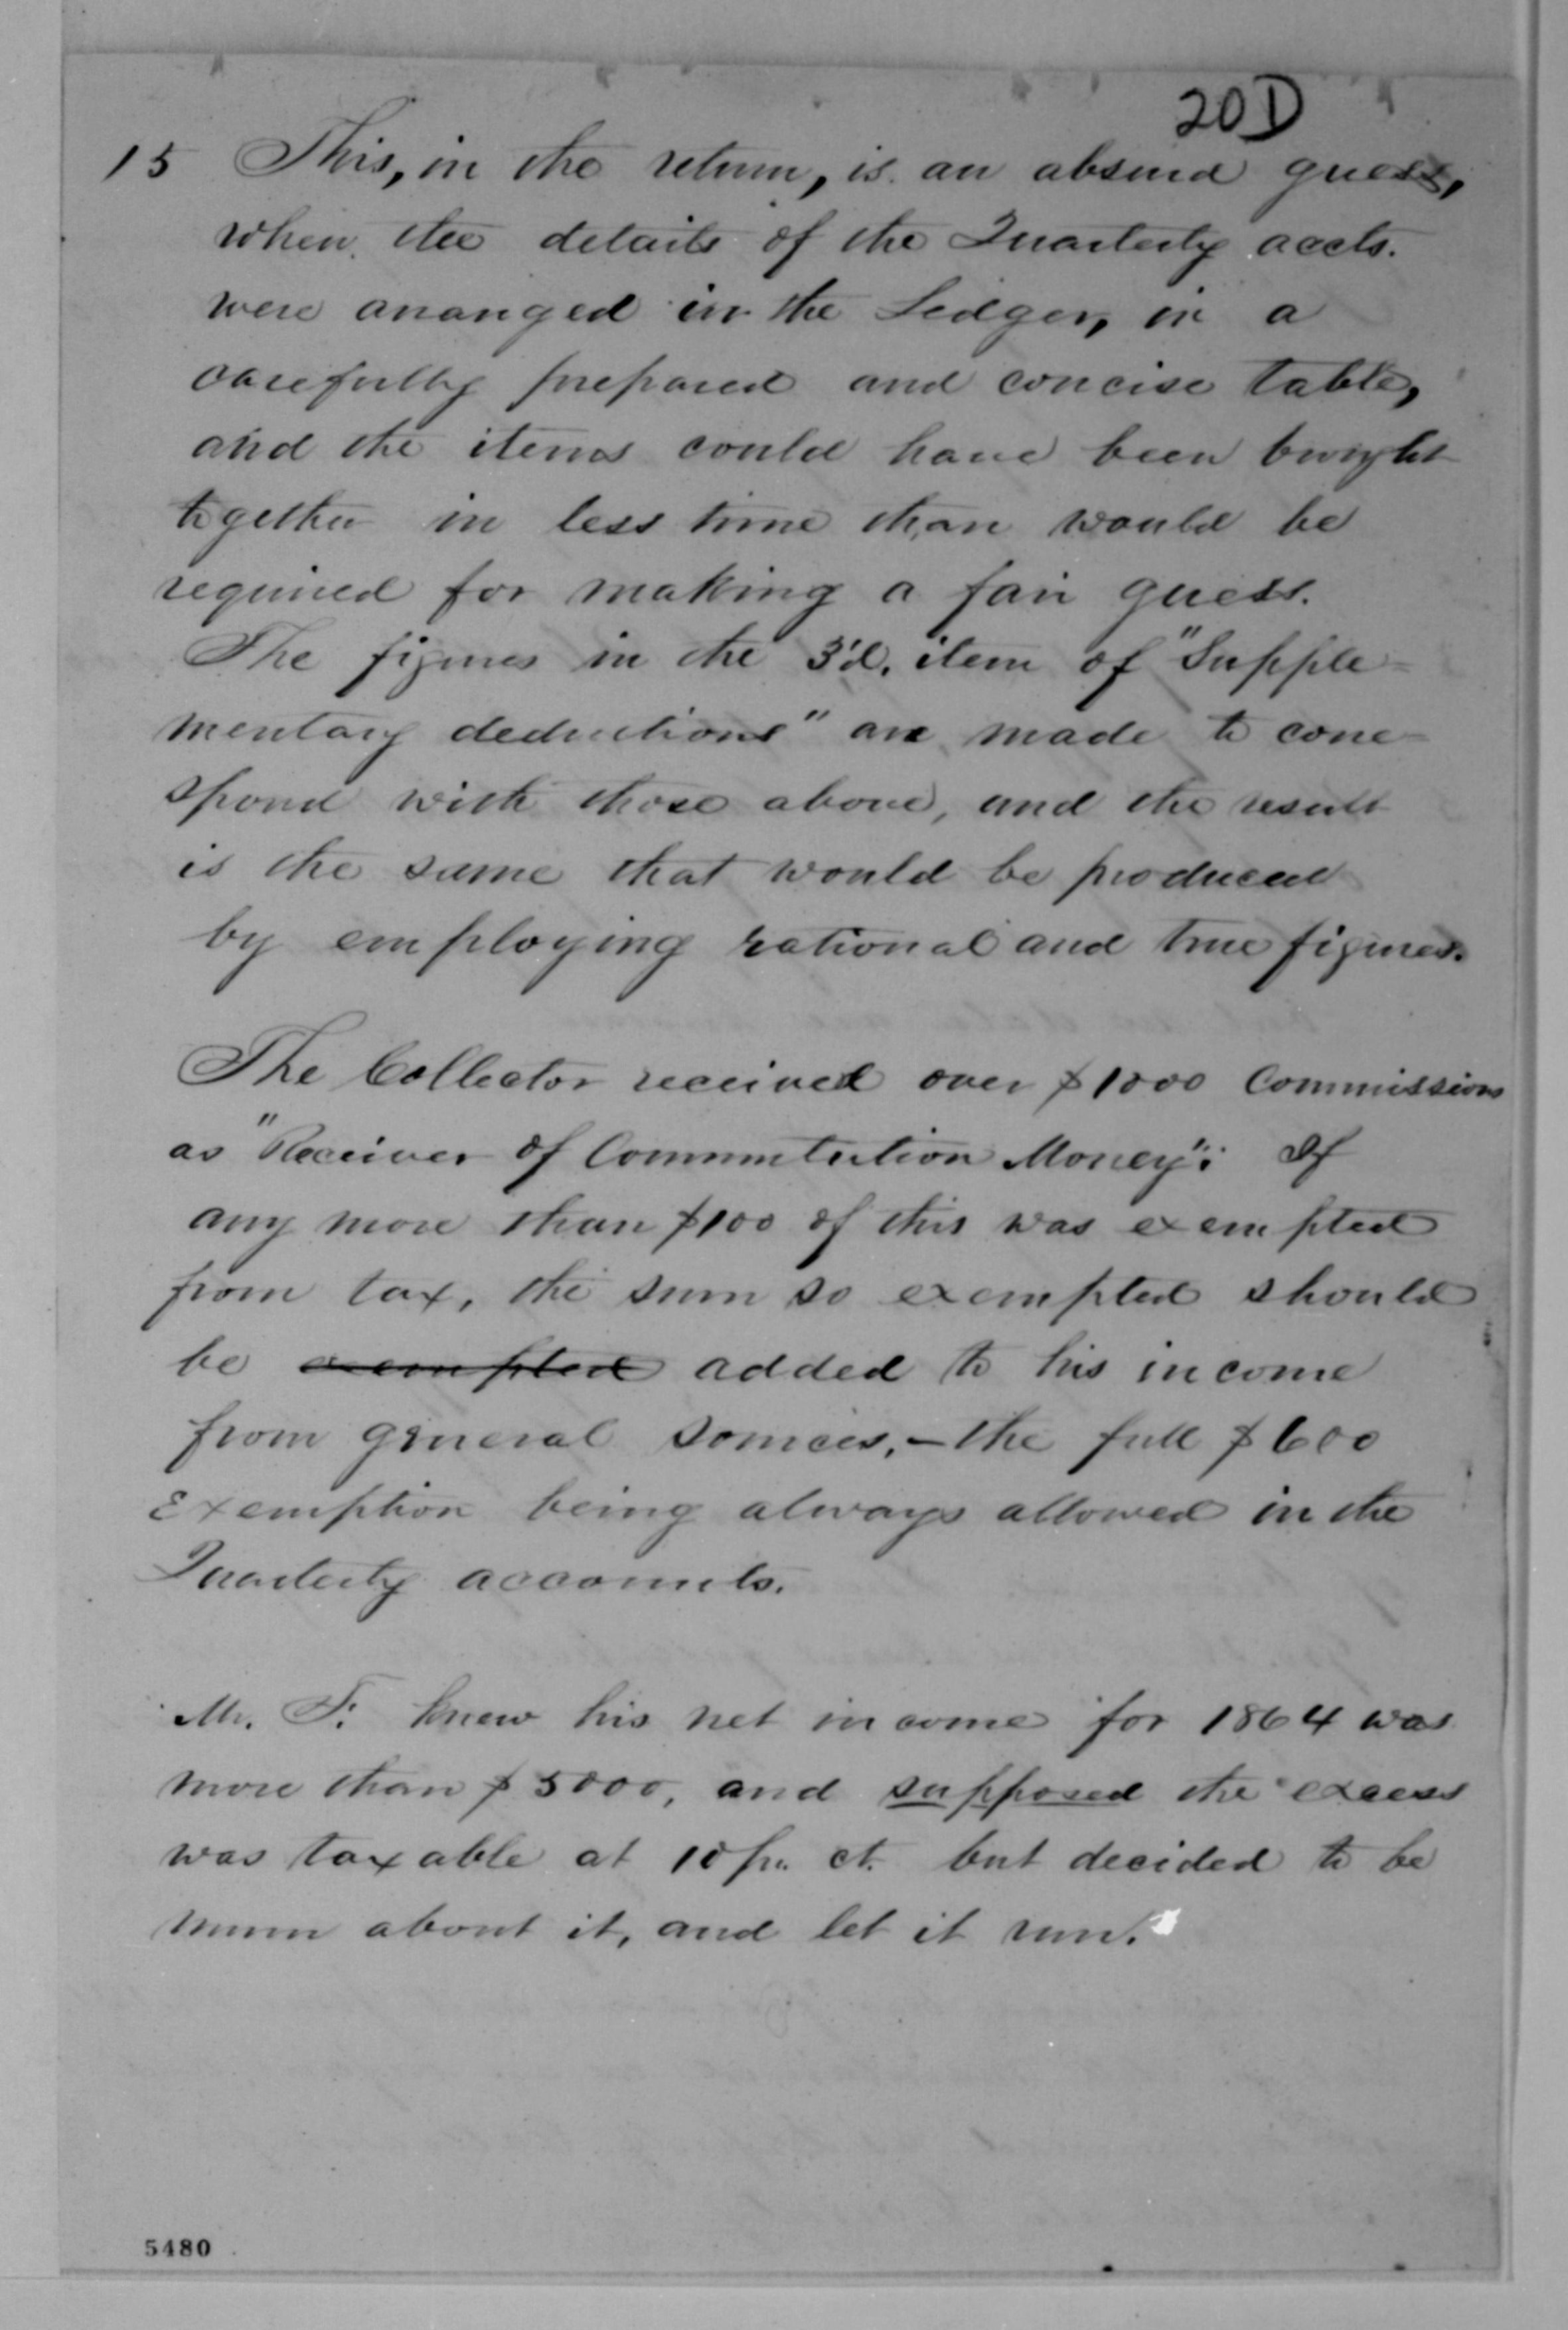 20D
15 This, in the return, is an absurd guess,
when the details of the Quarterly accts.
were arranged in the Ledger, in a
carefully prepared and concise table,
and the items could have been brought
together in less time than would be
required for making a fair guess.
The figures in the 3'd. item of "Supple=
mentary deductions" are made to corre=
spond with those above, and the result
is the same that would be produced
by employing rational and true figures.
The Collector received over $1000 Commissions
as "Receiver of Commutation Money": If
any more than $100 of this was exempted
from tax, the sum so exempted should
be exempted added to his income
from general sources, – the full $600
Exemption being always allowed in the
Quarterly accounts.
Mr. F. knew his net income for 1864 was
more than $5000, and supposed the excess
was taxable at 10 pr. ct. but decided to be
mum about it, and let it run.
5480